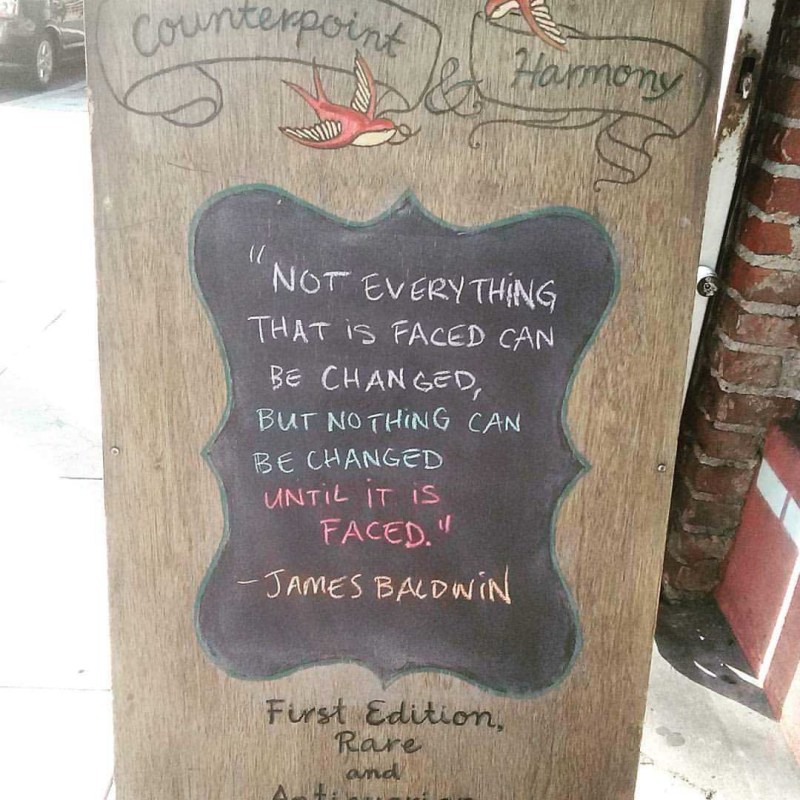 Counterpoint
&
Harmony
"NOT EVERYTHING
THAT iS FACED CAN
BE CHANGED,
BUT NOTHiNG CAN
BE CHANGED
UNTiL iT iS
FACED."
- JAMES BALDWiN
First Edition,
Rare
and
Antiquarian